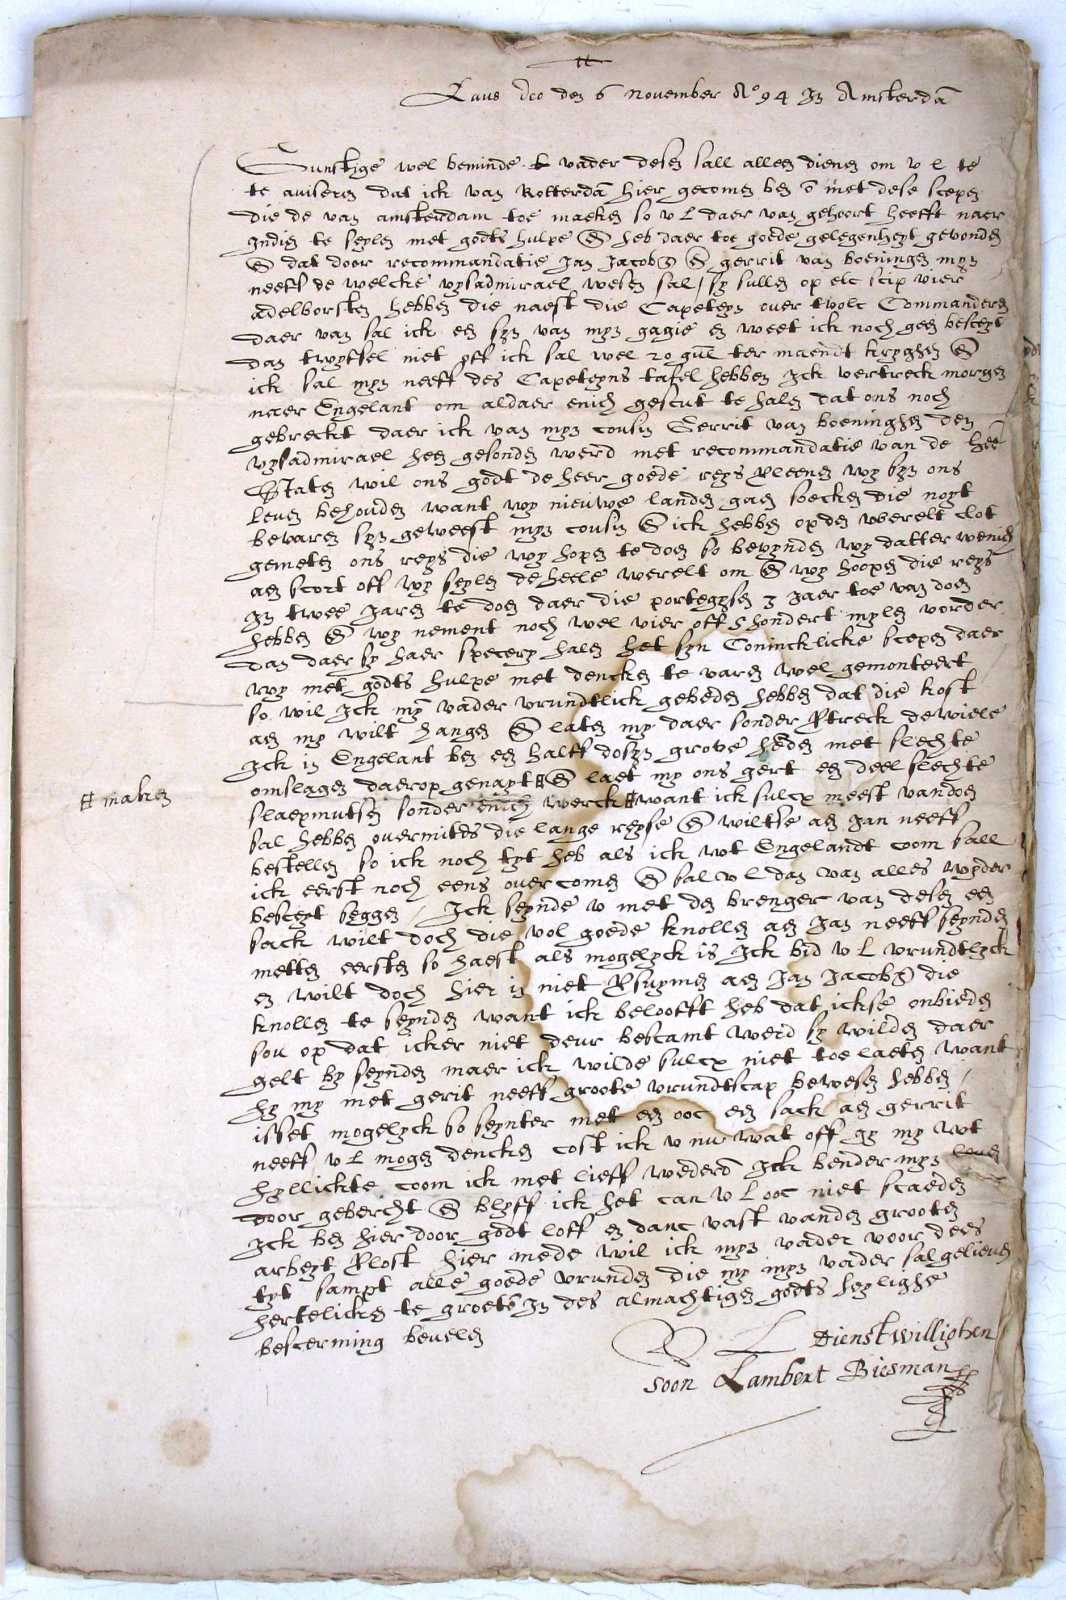 Laus deo den 6 november Ao 94 In Amsterdā
Gunstige wel beminde vader desen sall alleen dienen om v l te
te aviseren dat ick van Rotterdā hier gecomen ben ō met dese scepen
die de van amsterdam toe maeken so v l daer van gehoort heefft naer
Indien te seylen met godts hulpe & heb daer toe goede gelegenheyt gevonden
& dat door recommandatie Jan Jacobsz & gerrit van boeningen myn
neeff de welcke vysadmirael wesen sal / sy sullen op elc scip vier
adelborsten hebben die naest die Capeteyn over tvolc Commanderen
daer van sal ick een syn van myn gagie en weet ick noch geen bescheyt
dan twyfsel niet off ick sal wel 20 gul ter maendt kryghen &
ick sal myn neeff des Capeteyns tafel hebben Ick vertreck morgen
naer Engelant om aldaer enich gescut te halen dat ons noch
gebreckt daer ick van myn cousin Gerrit van boeninghen den
vysadmirael heen gesonden werd met recommandatie van de heē
Staten wil ons godt de heer goede reys verleenen wy syn ons
leven behouden want wy nieuwe landen gaen soecken die noyt
bevaren syn geweest myn cousin & ick hebben op den werelt clot
gemeten ons reys die wy hopen te doen so bevynden wy datter wenich
aen scort off wy seylen de heele werelt om & wy hoopen die reys
In twee Jaren te doen daer die portegysen 3 Jaer toe van doen
hebben & wy nement noch wel vier off 5 hondert mylen vorder
dan daer sy haer specery halen het syn Conincklicke scepen daer
wy met godts hulpe met dencken te varen wel gemonteert
so wil Ick myn vader vrundtlick gebeden hebben dat die kost
aen my wilt hangen & laten my daer sonder vertreck dewiele
Ick in Engelant ben een halff dosyn grove hēden met slechte
omslagen daerop genayt & laet my ons gert een deel slechte
slaepmutsen sonder enich werck # want ick sulcx meest vandoen
# maken
sal hebben overmits die lange reyse & wiltse aen Jan neeff
bestellen so ick noch tyt heb als ick wt Engelandt coom sall
ick eerst noch eens over comen & sal v l dan van alles wyder
bescheyt seggen / Ick seynde v met den brenger van desen een
sack wilt doch die vol goede knollen aen Jan neeff seynden
metten eersten so haest als mogelyck is Ick bid v l vrundtlyck
en wilt doch hier in niet versuymen aen Jan Jacobsz die
knollen te seynden want ick belooft heb dat ickse onbieden
sou op dat icker niet deur bescamt werd sy wilden daer
gelt by seynden maer ick wilde sulcx niet toe laeten want
hy my met gerit neeff groote vrundtscap bewesen hebben /
isset mogelyck so seynter met een ooc een sack aen gerrit
neeff v l mogen dencken cost ick v nu wat off gy my wt
hyllickte coom ick met lieff wederō Ick bender myn leven
door gebercht & blyff ick het can v l ooc niet scaeden
Ick ben hier door godt loff en danc vast vanden grooten
arbeyt verlost hier mede wil ick myn vader voor dees
tyt sampt alle goede vrunden die my myn vader sal gelieven
hertelicken te groetē In des almachtigen godts heylighe
bescerming bevelen
V L Dienstwillighen
soon Lambert Biesman